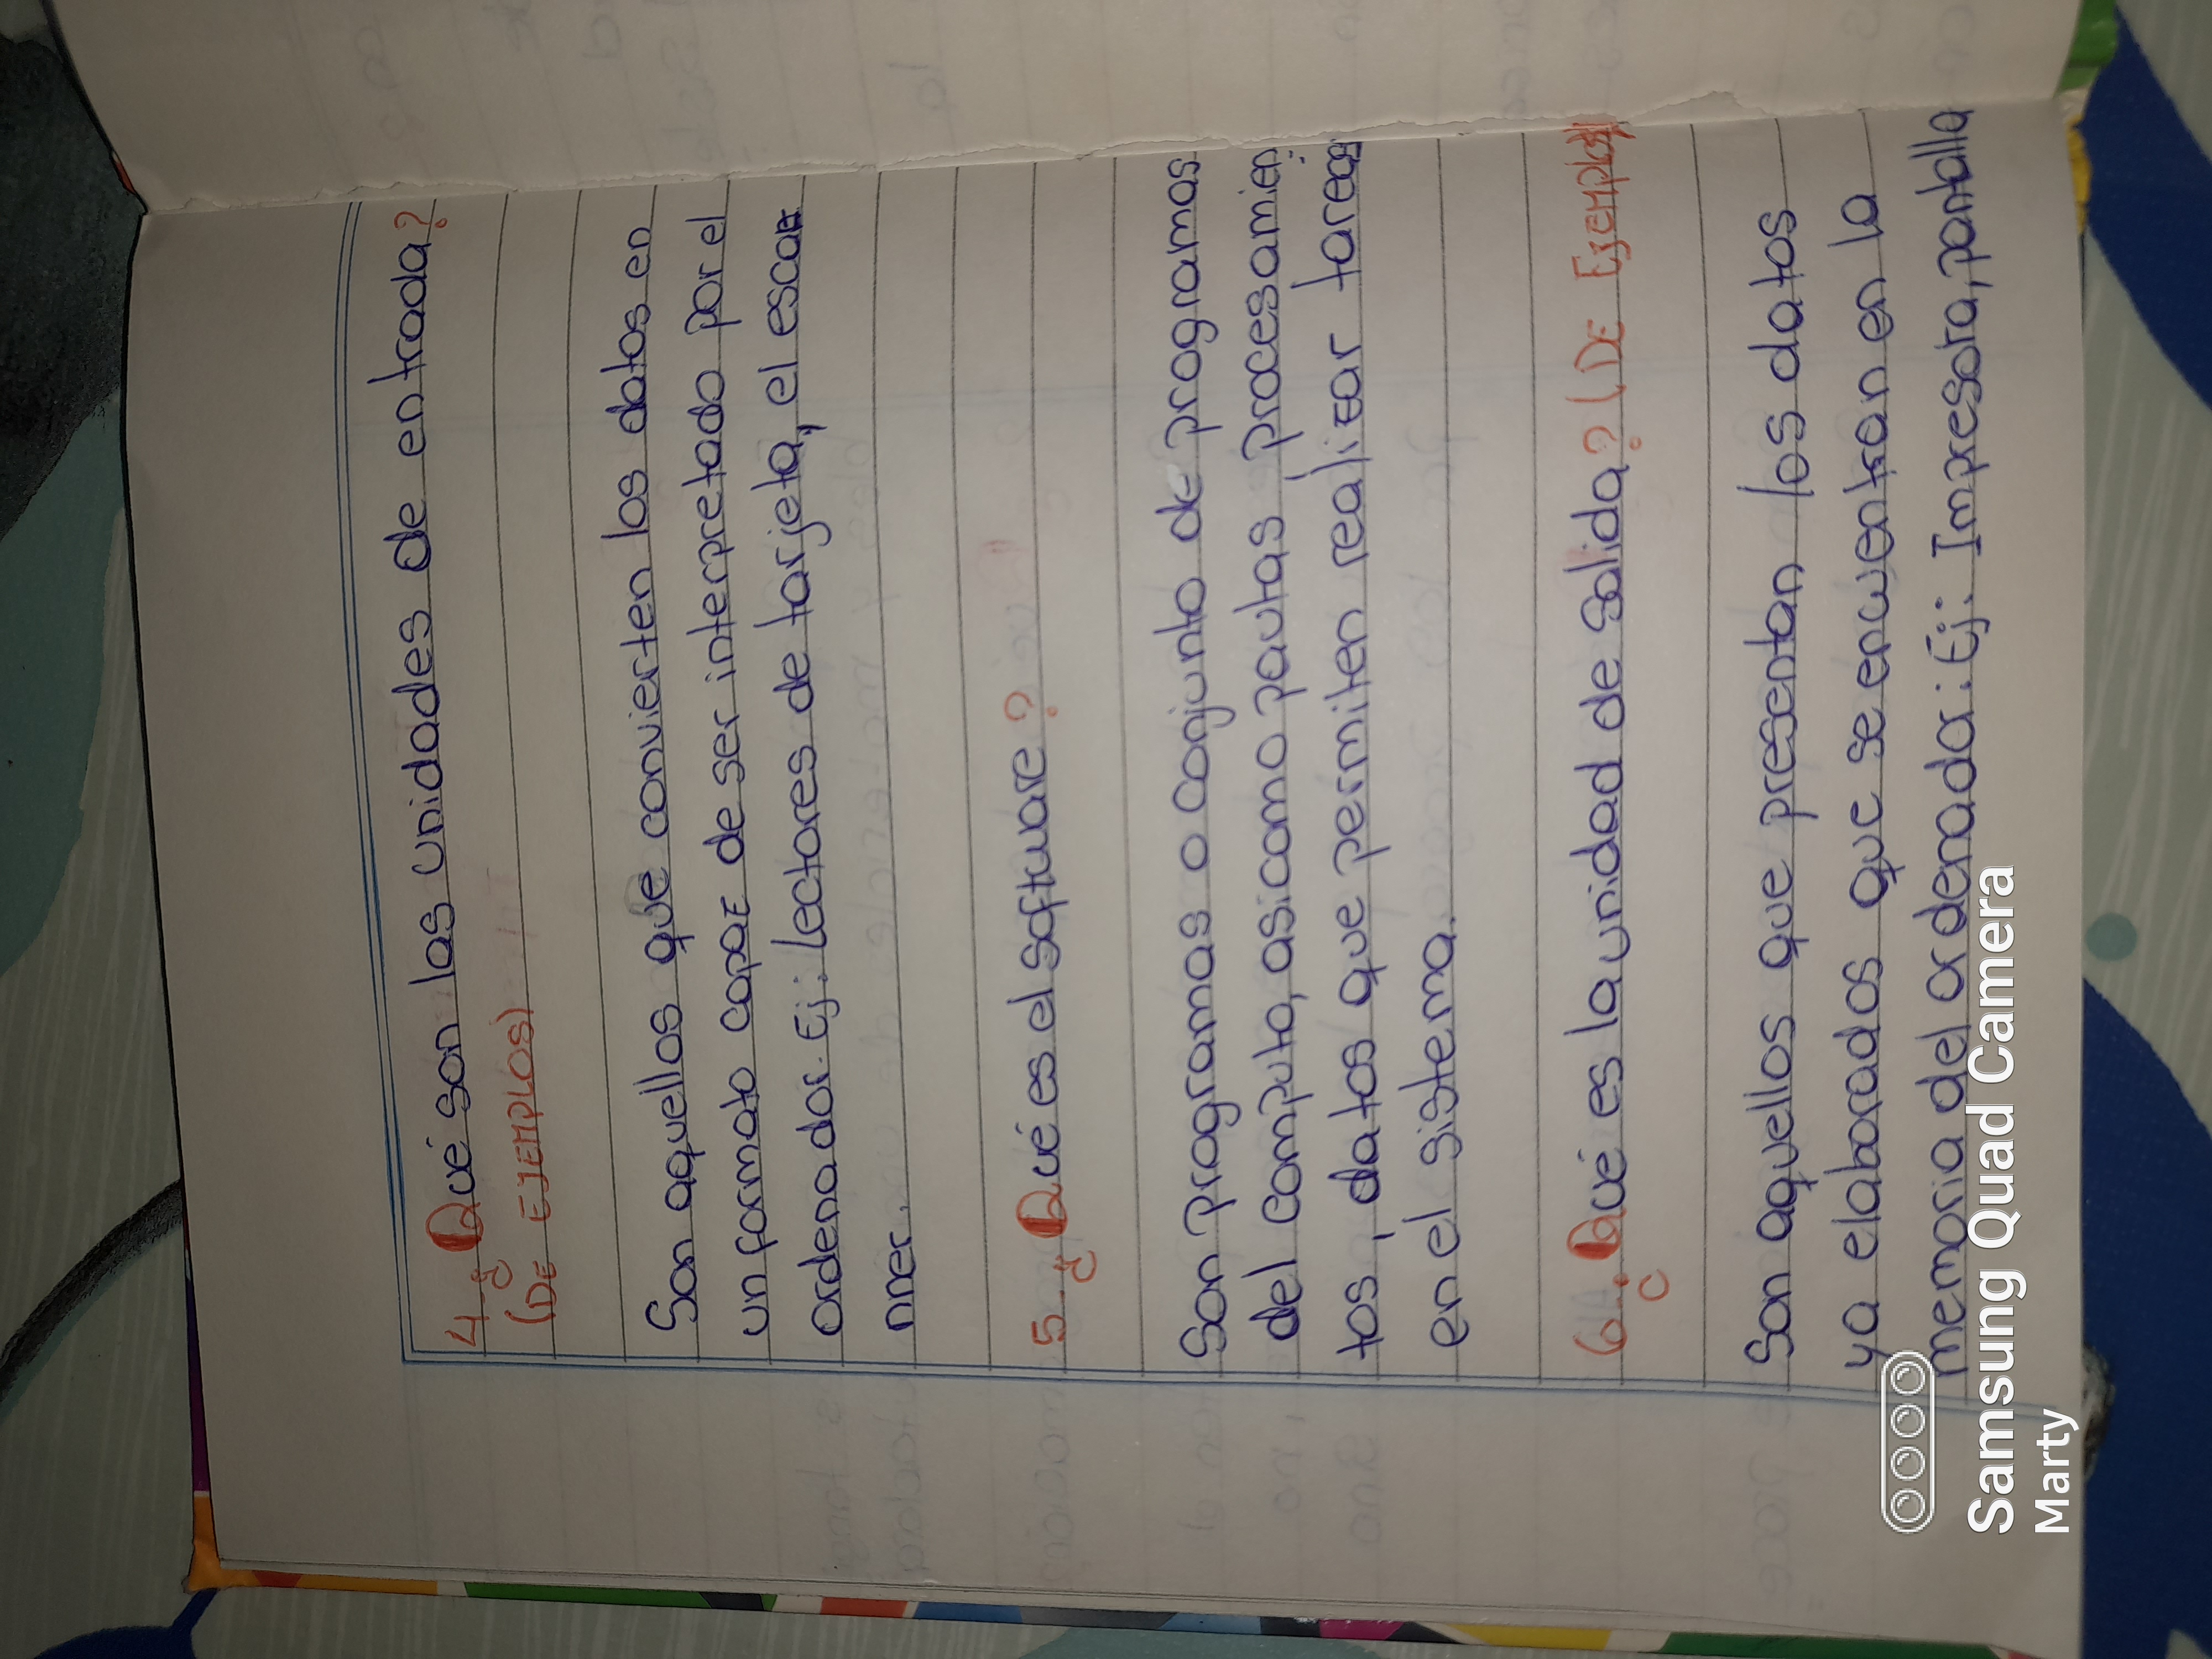 4. ¿Qué son las unidades de entrada?
(DE EJEMPLOS)
Son aquellos que convierten los datos en
un formato capaz de ser interpretado por el
ordenador. Ej: lectores de tarjeta, el esca
nner.
5. ¿Qué es el software?
Son programas o conjunto de programas
del computo, asi como pautas procesamien
tos, datos que permiten realizar tareas
en el sistema.
6. ¿Qué es la unidad de salida? (DE EJEMPLOS)
Son aquellos que presentan los datos
ya elaborados que se encuentran en la
memoria del ordenador. Ej: Impresora, pantalla
Samsung Quad Camera
Marty